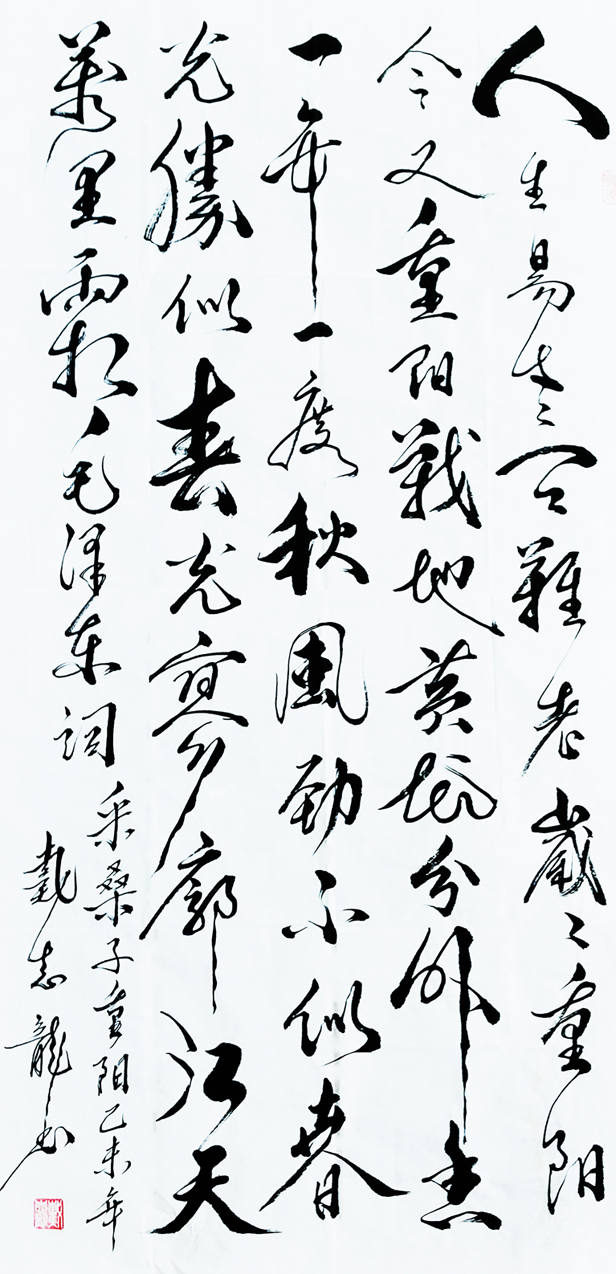 人生易老天難老歲〻重阳
今又重阳戰地黄花分外香
一年一度秋風勁不似春
光勝似春光寥廓江天
萬里霜毛泽东词
采桑子重阳己未年
戴志龍书